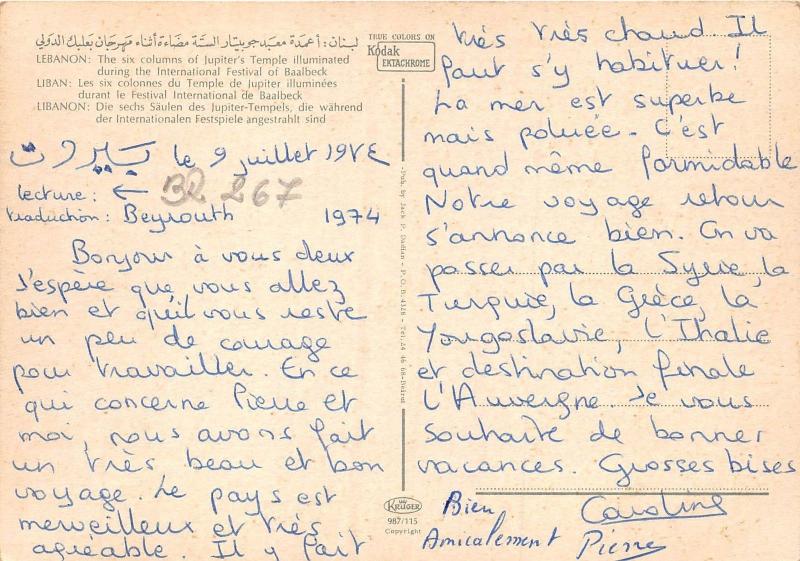 لبنان: أعمدة معبد جوبيتار الستة مضاءة أثناء مهرجان بعلبك الدولي
LEBANON: The six columns of Jupiter's Temple illuminated
during the International Festival of Baalbeck
LIBAN: Les six colonnes du Temple de Jupiter illuminées
durant le Festival International de Baalbeck
LIBANON: Die sechs Säulen des Jupiter-Tempels, die während
der Internationalen Festspiele angestrahlt sind
TRUE COLORS ON
Kodak
EKTACHROME
بيروت le 9 juillet ١٩٧٤
lecture : ←
BR 267
traduction : Beyrouth 1974
Bonjour à vous deux
J'espère que vous allez
bien et qu'il vous reste
un peu de courage
pour travailler. En ce
qui concerne Pierre et
moi, nous avons fait
un très beau et bon
voyage. Le pays est
merveilleux et très
agréable. Il y fait
-Pub. by Jack P. Dadian - P.O.B 4128 - Tel. 24 46 68-Beirut
KRÜGER
987/115
Copyright
très très chaud. Il
faut s'y habituer!
La mer est superbe
mais poluée. C'est
quand même formidable
Notre voyage retour
s'annonce bien. On va
passer par la Syrie, la
Turquie, la Grèce, la
Yougoslavie, l'Ithalie
et destination finale
l'Auvergne. Je vous
souhaite de bonnes
vacances. Grosses bises
Bien Caroline
Amicalement Pierre